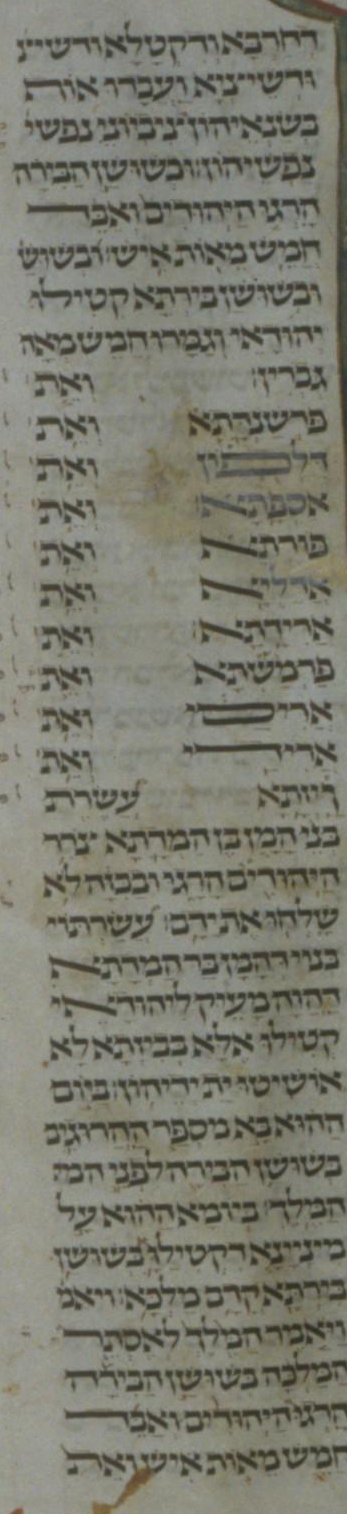 דחרבא ודקטלא ודשיצ
ודשיציא ועבדו אות
בשנאיהון צביוני נפשי
נפשיהון ובשושן הבירה
הרגו היהודים ואבד
חמש מאות איש ובשוש
ובשושן בירתא קטילו
יהודאי וגמרו חמש מאה
גברין ואת
פרשנדתא ואת
דלפון ואת
אספתא ואת
פורתא ואת
אדליא ואת
ארידתא ואת
פרמשתא ואת
אריסי ואת
ארידי ואת
ויזתא עשרת
בני המן בן המדתא צרר
היהודים הרגו ובבזה לא
שלחו את ידם עשרתוי
בנוי דהמן בר המדתא
דהוה מעיק ליהודאי
קטילו אלא בביזתא לא
אושיטו ית ידיהון ביום
ההוא בא מספר ההרוגים
בשושן הבירה לפני המ
המלך ביומא ההוא על
מיניינא דקטילו בשושן
בירתא קדם מלכא ויאמ
ויאמר המלך לאסתר
המלכה בשושן הבירה
הרגו היהודים ואבד
חמש מאות איש ואת